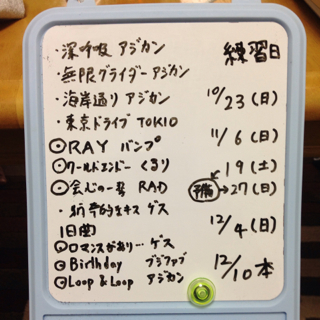 ・深呼吸 アジカン
・無限グライダー アジカン
・海岸通り アジカン
・東京ドライブ TOKIO
⊙RAY バンプ
⊙ワールドエンド くるり
⊙会心の一撃 RAD
・猟奇的なキス ゲス
1日曲
⊙ロマンスがあり… ゲス
⊙Birthday
⊙Loop & Loop アジカン
練習日
10/23(日)
11/6(日)
19(土)
予備→27(日)
12/4(日)
12/10 本